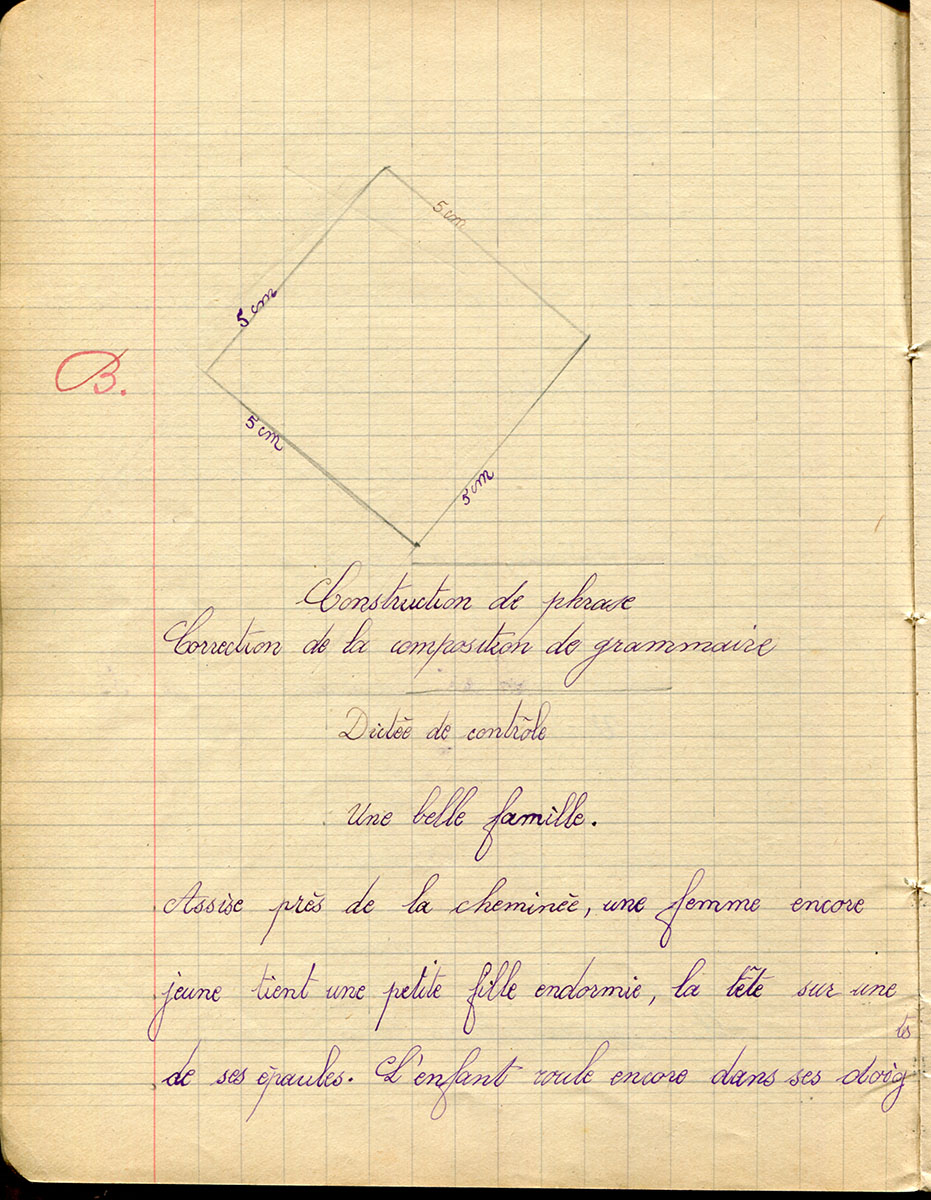 5 cm
5 cm
B.
5 cm
5 cm
Construction de phrase
Correction de la composition de grammaire
Dictée de contrôle
Une belle famille.
Assise près de la cheminée, une femme encore
jeune tient une petite fille endormie, la tête sur une
de ses épaules. L'enfant roule encore dans ses doigts